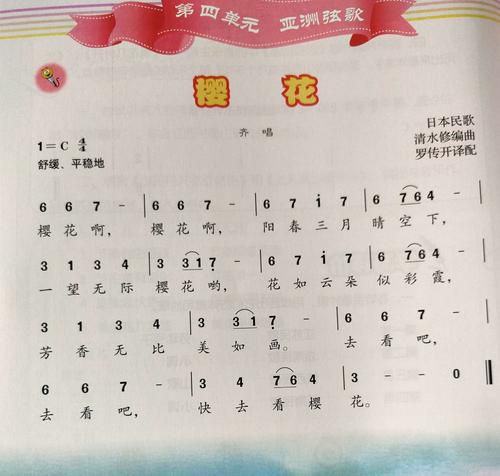 第四单元 亚洲弦歌
樱花
齐 唱
日本民歌
1=C 4/4
清水修编曲
舒缓、平稳地
罗传开译配
6 6 7 - | 6 6 7 - | 6 7 i 7 | 6 7 6 4 - |
樱 花 啊， 樱 花 啊， 阳 春 三 月 晴 空 下，
3 1 3 4 | 3 3 1 7 - | 6 7 i 7 | 6 7 6 4 - |
一 望 无 际 樱 花 哟， 花 如 云 朵 似 彩 霞，
3 1 3 4 | 3 3 1 7 - | 6 6 7 - |
芳 香 无 比 美 如 画。 去 看 吧，
6 6 7 - | 3 4 7 6 4 | 3 - - 0 ‖
去 看 吧， 快 去 看 樱 花。